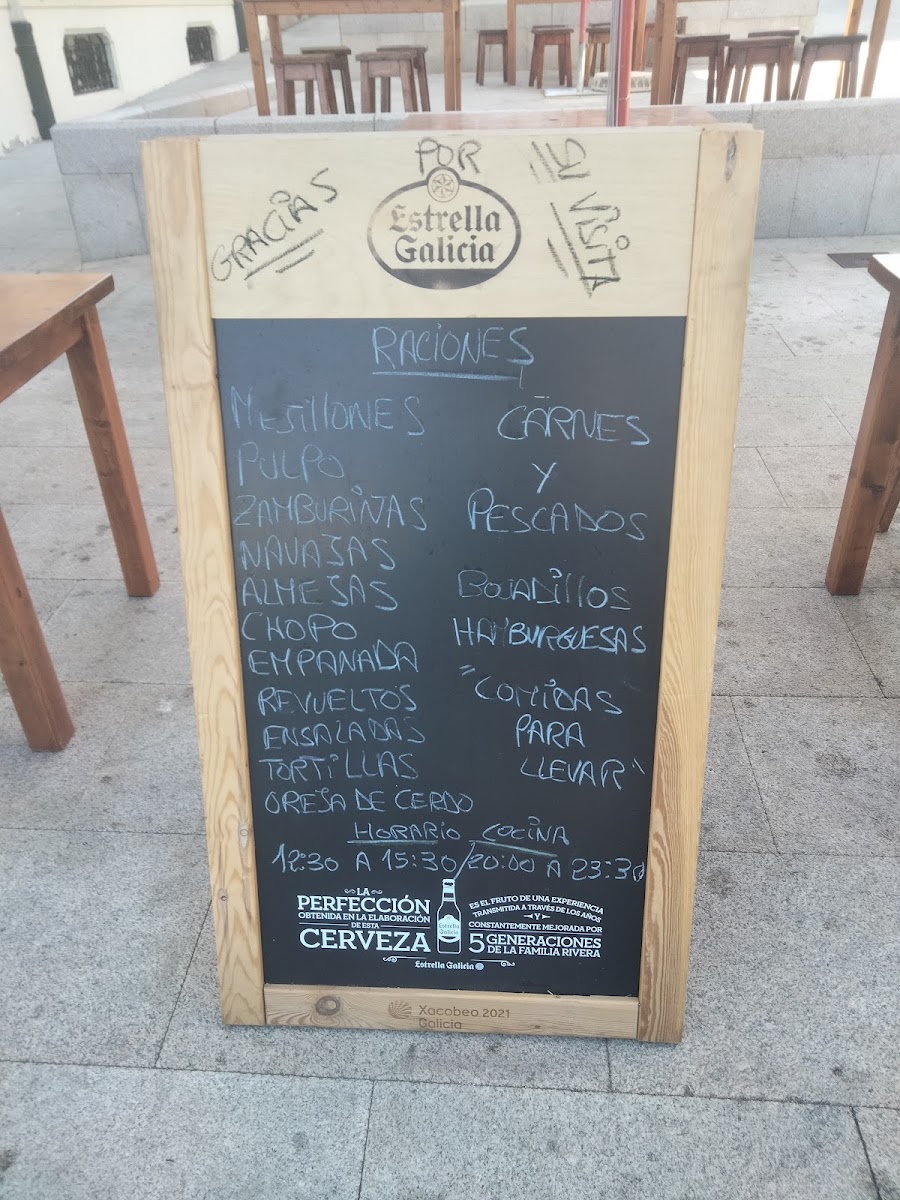 GRACIAS POR SU VISITA
Estrella
Galicia
RACIONES
MEJILLONES
PULPO
ZAMBURIÑAS
NAVAJAS
ALMEJAS
CHOPO
EMPANADA
REVUELTOS
ENSALADAS
TORTILLAS
OREJA DE CERDO
CARNES
Y
PESCADOS
BOCADILLOS
HAMBURGUESAS
"COMIDAS
PARA
LLEVAR"
HORARIO COCINA
12:30 A 15:30/20:00 A 23:30
LA
PERFECCIÓN
OBTENIDA EN LA ELABORACIÓN
DE ESTA
CERVEZA
Estrella
Galicia
ES EL FRUTO DE UNA EXPERIENCIA
TRANSMITIDA A TRAVÉS DE LOS AÑOS
Y
CONSTANTEMENTE MEJORADA POR
5 GENERACIONES
DE LA FAMILIA RIVERA
Estrella Galicia
Xacobeo 2021
Galicia